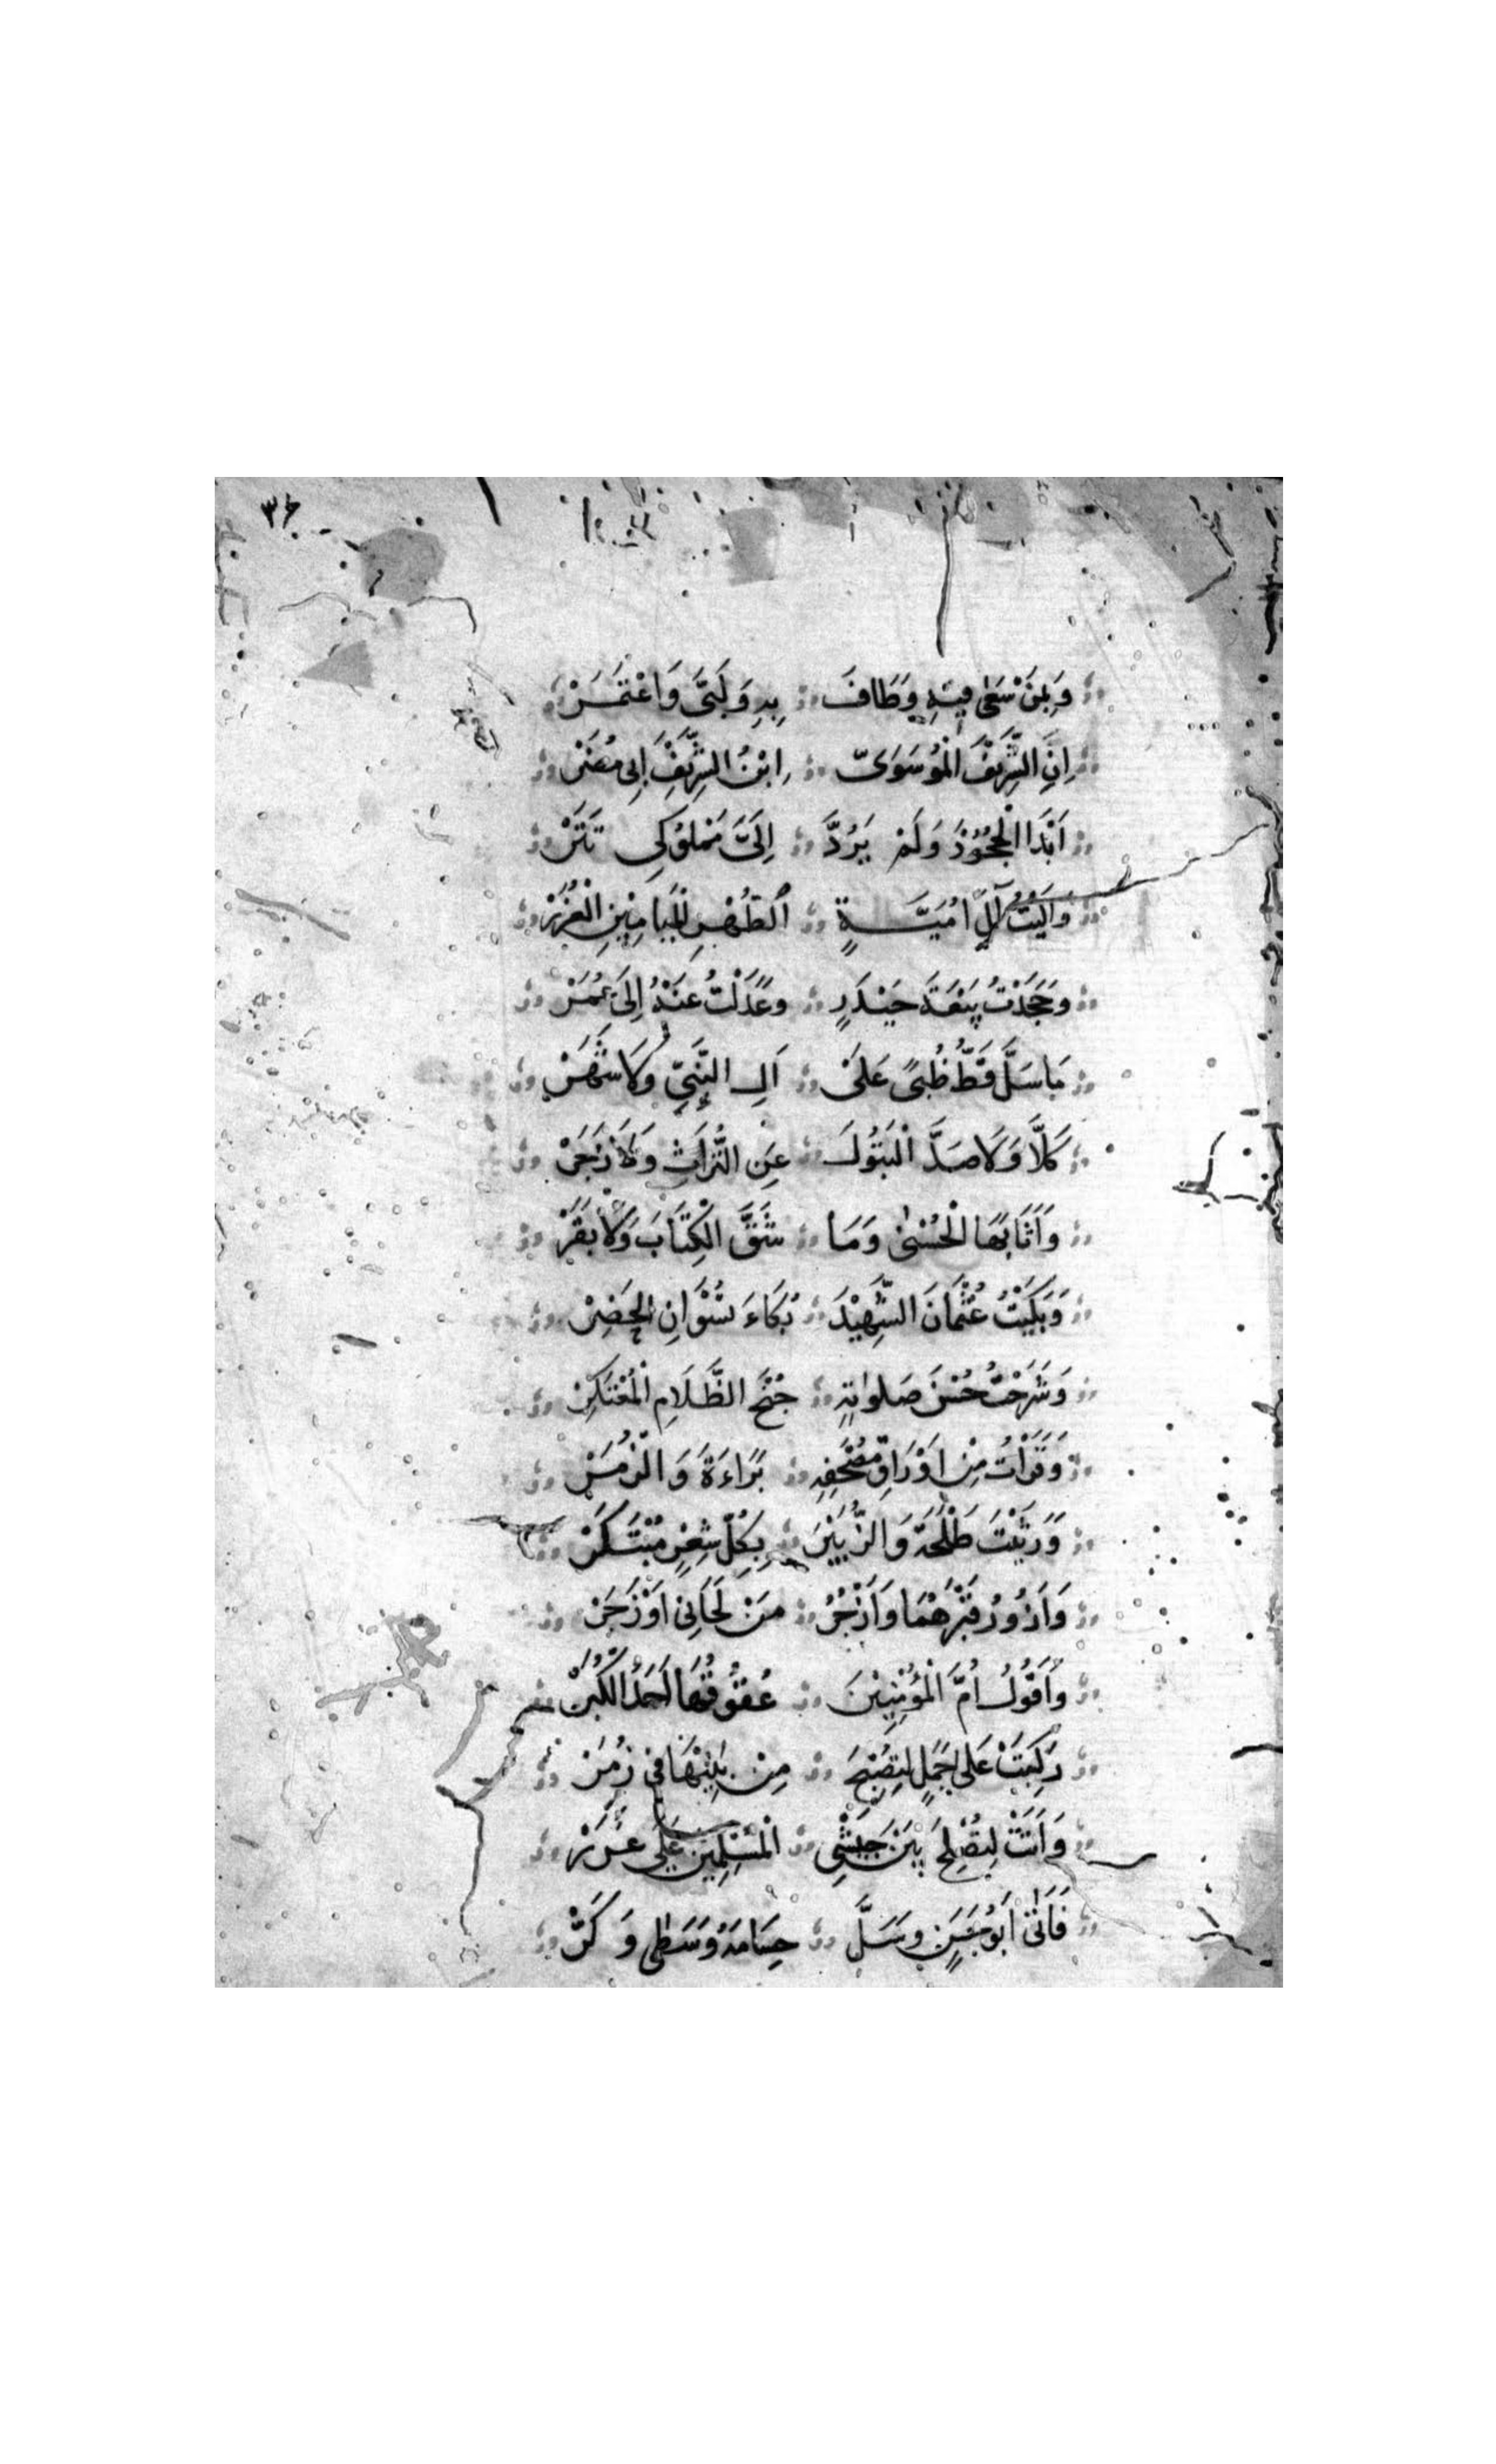 ٣٤
وَبِمَنْ سَعٰى فِيهِ وَطَافَ بِهِ وَلَبَّى وَاعْتَمَرْ
اِنِ الشَّرِيفُ الْمُوسَوِيّ ابْنُ الشَّرِيفِ اَبِي مُضَرْ
اَبْدَا الْجُحُوْدَ وَلَمْ يَرُدَّ اِلَيَّ مَمْلُوْكِي تَتَرْ
وَالَيْتُ آلَ اُمَيَّةٍ الطُّهْرِ الْمَيَامِيْنِ الْغُرَرْ
وَجَحَدْتُ بَيْعَةَ حَيْدَرٍ وَعَدَلْتُ عَنْهُ اِلَى عُمَرْ
مَا سَلَّ قَطُّ ظُبىً عَلَى آلِ النَّبِيِّ وَلَا شَهَرْ
كَلَّا وَلَا صَدَّ الْبَتُوْلَ عَنِ التُّرَاثِ وَلَا زَجَرْ
وَاَثَابَهَا الْحُسْنٰى وَمَا شَقَّ الْكِتَابَ وَلَا بَقَرْ
وَبَكَيْتُ عُثْمَانَ الشَّهِيْدَ بُكَاءَ نِسْوَانِ الْحَضَرْ
وَشَرَحْتُ حُسْنَ صَلٰوتِهِ جُنْحَ الظَّلَامِ الْمُعْتَكِرْ
وَقَرَأْتُ مِنْ اَوْرَاقِ مُصْحَفِهِ بَرَاءَةَ وَالزُّمَرْ
وَرَثَيْتُ طَلْحَةَ وَالزُّبَيْرَ بِكُلِّ شِعْرٍ مُبْتَكَرْ
وَاَزُوْرُ قَبْرَهُمَا وَاَزْجُرُ مَنْ لَحَانِي اَوْ زَجَرْ
وَاَقُوْلُ اُمُّ الْمُؤْمِنِيْنَ عُقُوْقُهَا اِحْدَى الْكُبَرْ
رَكِبَتْ عَلَى جَمَلٍ لِتُصْبِحَ مِنْ بَنِيْهَا فِي زُمَرْ
وَاَتَتْ لِتُصْلِحَ بَيْنَ جَيْشِ الْمُسْلِمِيْنَ عَلَى غَرَرْ
فَاَتَى اَبُوْ حَسَنٍ وَسَلَّ حِسَامَهُ وَسَطٰى وَكَرّْ